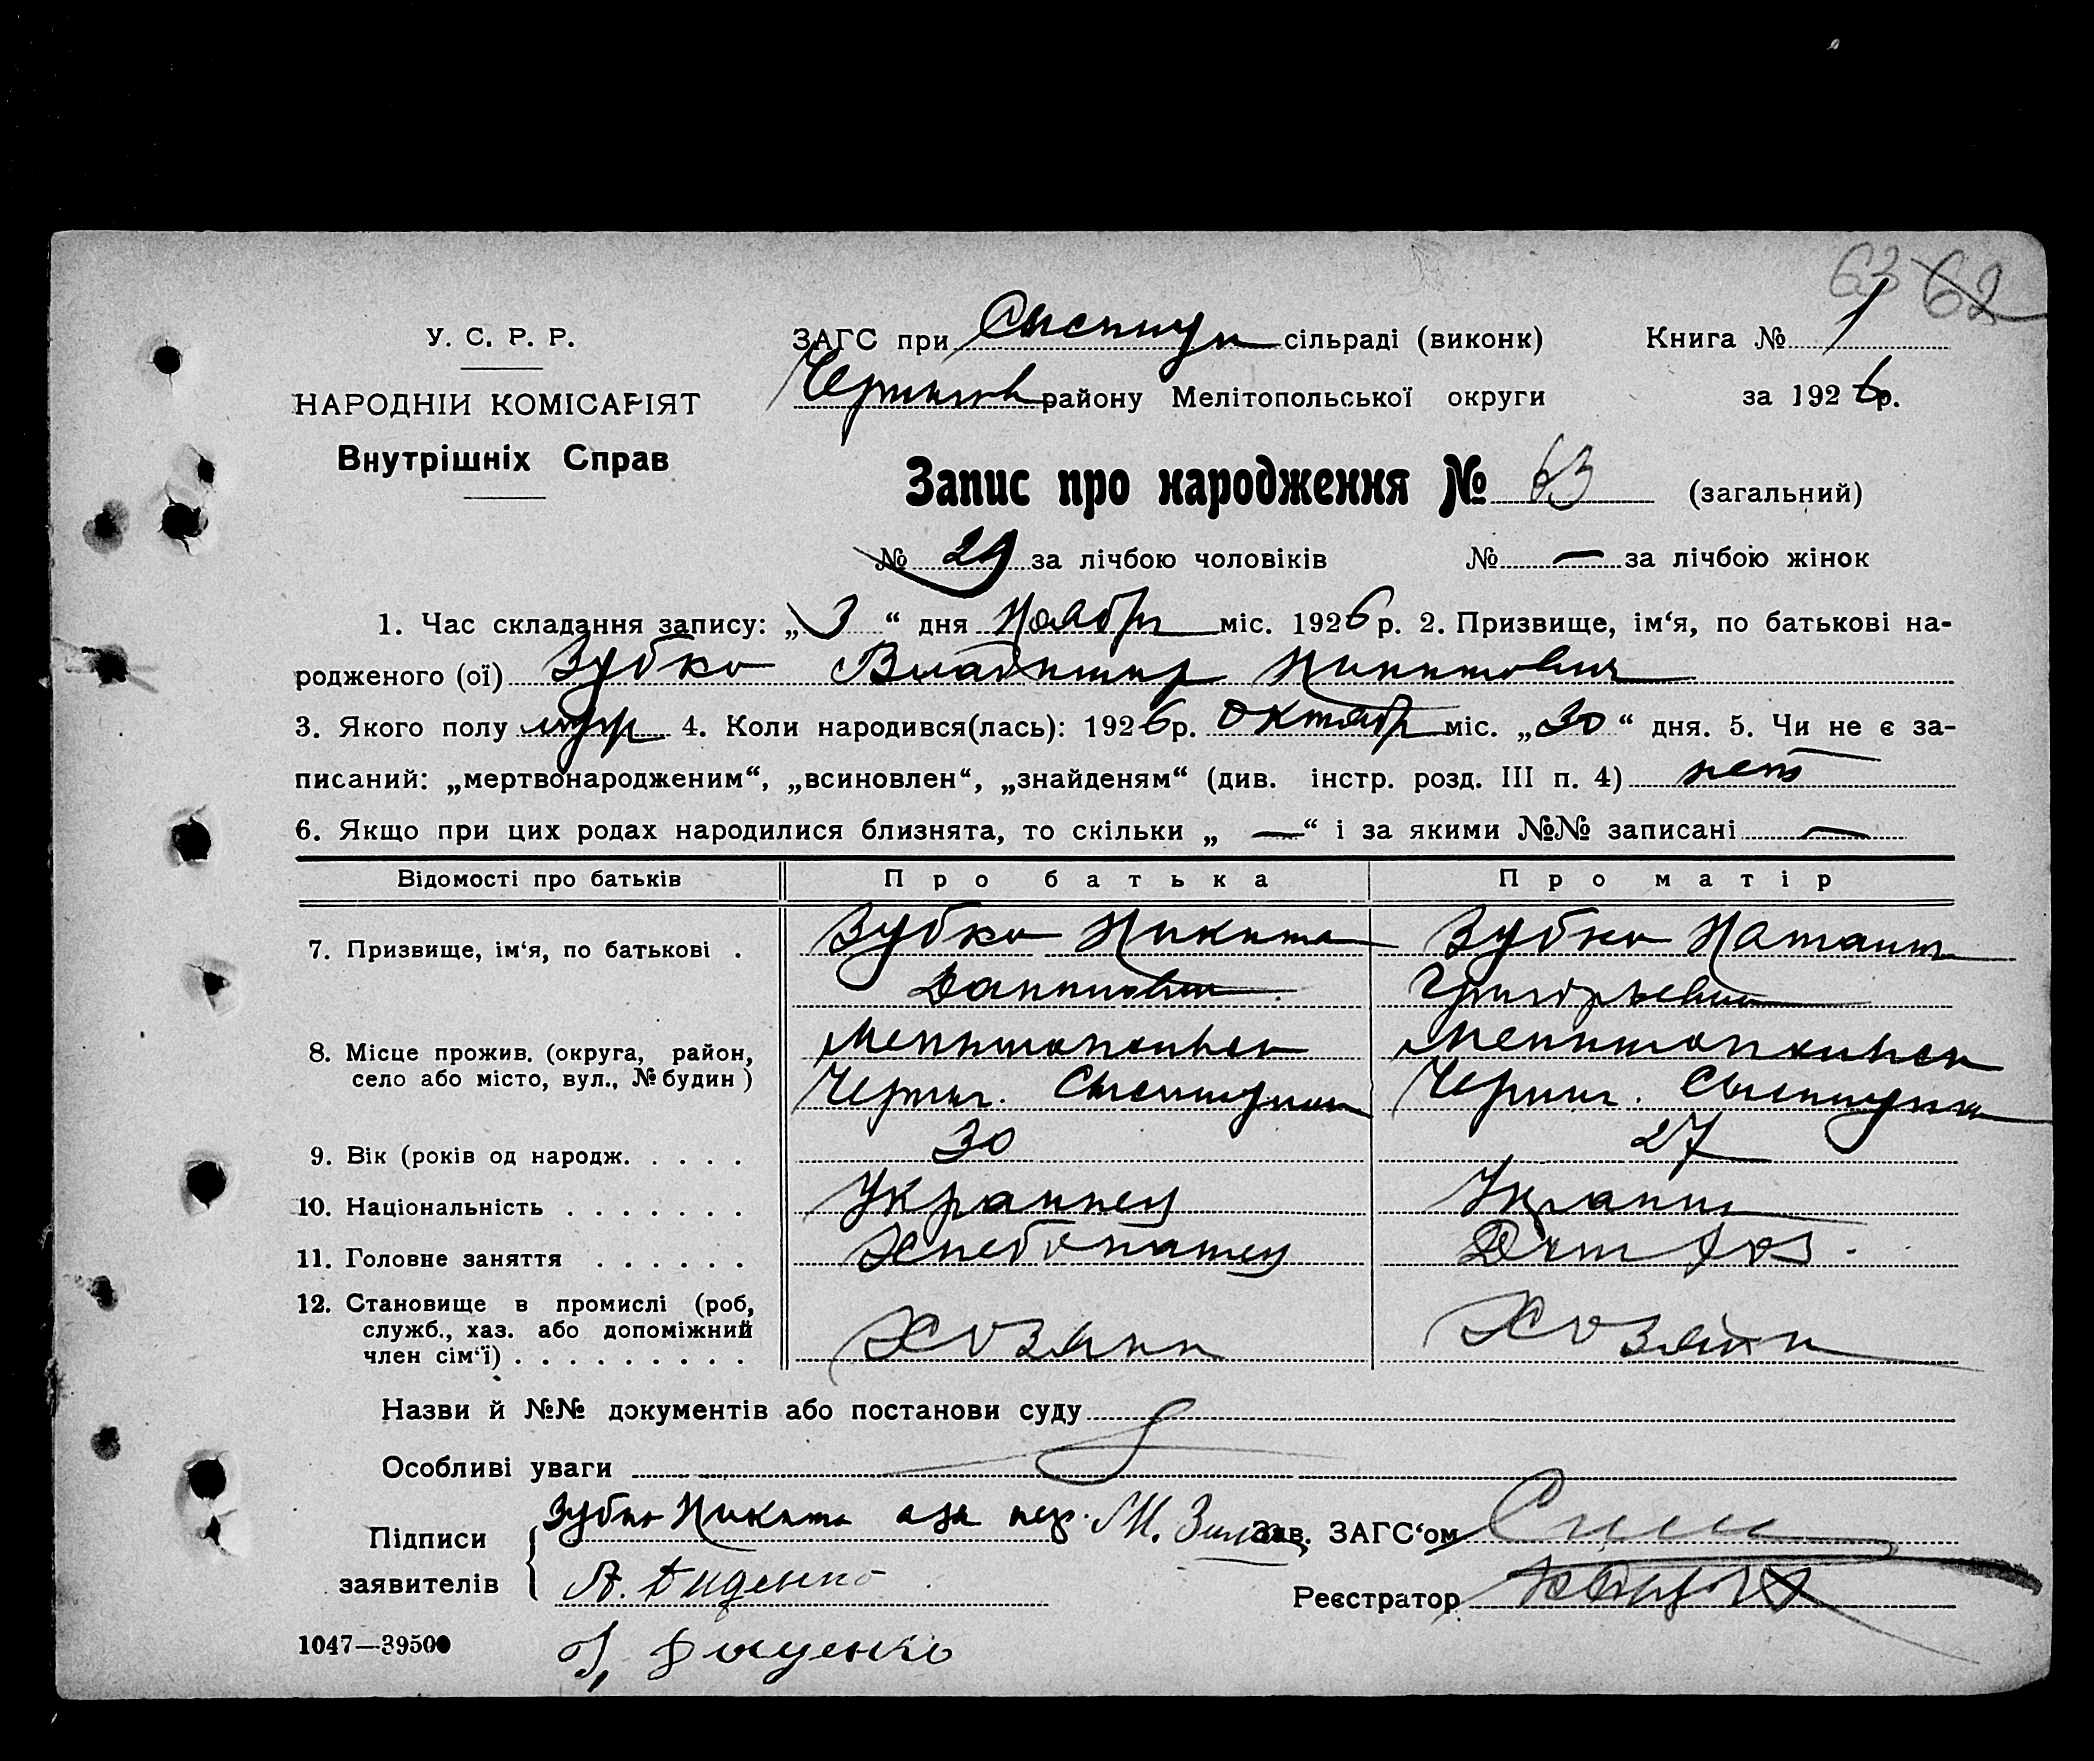 63 62
У. С. Р. Р.
ЗАГС при сільраді (виконк) Книга № 1
НАРОДНІЙ КОМІСАРІЯТ
району Мелітопольської округи за 1926 р.
Внутрішніх Справ
Запис про народження № 63 (загальний)
№ 29 за лічбою чоловіків № — за лічбою жінок
1. Час складання запису: „ 3 “ дня Ноябрь міс. 1926 р. 2. Призвище, ім‘я, по батькові на-
родженого (ої) Зубко Владимир Никитович
3. Якого полу муж 4. Коли народився(лась): 1926 р. Октябр міс. „ 30 “ дня. 5. Чи не є за-
писаний: „мертвонародженим“, „всиновлен“, „знайденям“ (див. інстр. розд. III п. 4) нет
6. Якщо при цих родах народилися близнята, то скільки „ — “ і за якими №№ записані —
Відомості про батьків Про батька Про матір
7. Призвище, ім‘я, по батькові . Зубко Никита Зубко Наталия
Данилович Григорьевна
8. Місце прожив. (округа, район, Мелитопольск Мелитопольск
село або місто, вул., № будин )
9. Вік (років од народж. . . . . 30 27
10. Національність . . . . . . . Украинец Украин
11. Головне заняття . . . . . . Хлебопашец Дом хоз.
12. Становище в промислі (роб,
служб., хаз. або допоміжний
член сім‘ї) . . . . . . . . . Хозяин Хозяйка
Назви й №№ документів або постанови суду
Особливі уваги
Підписи Зубко Никита а за нег. М. Зав. ЗАГС‘ом
заявителів А. Диденко Реєстратор
1047—39500